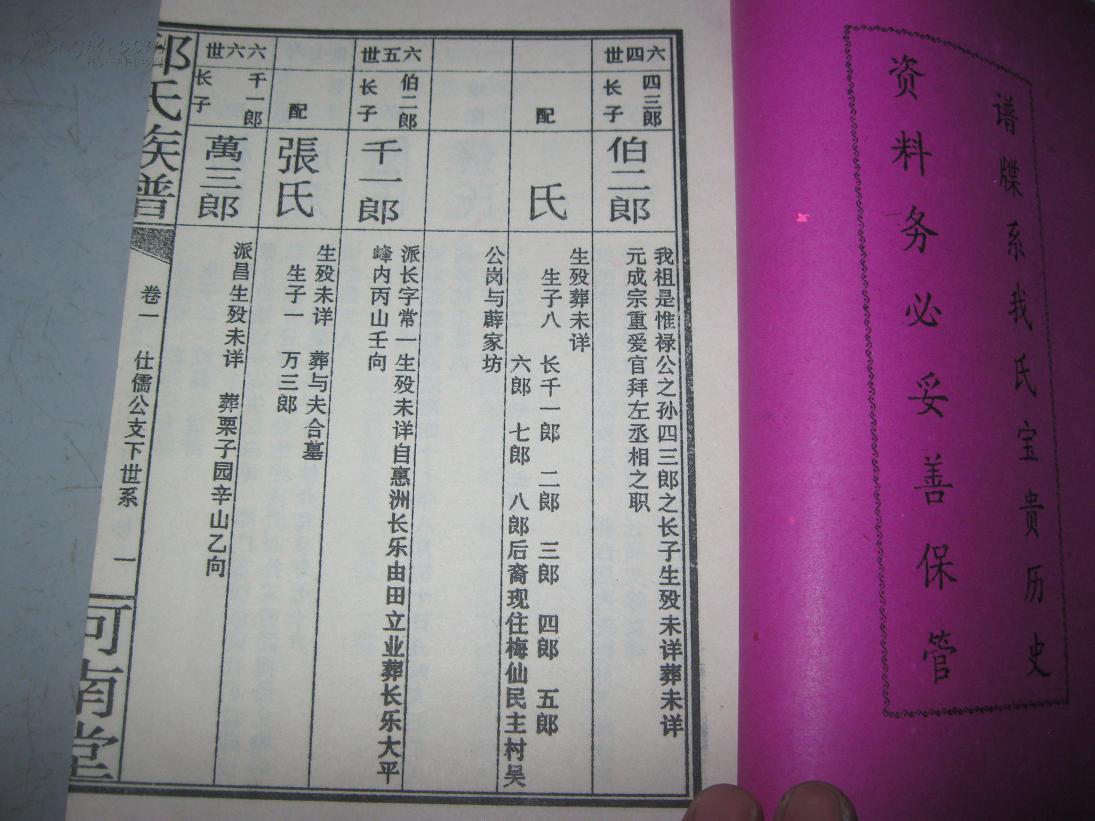 谱牒系我氏宝贵历史
资料务必妥善保管
六四世
四三郎
长子
伯二郎
我祖是惟禄公之孙四三郎之长子生殁未详葬未详
元成宗重爱官拜左丞相之职
配
氏
生殁葬未详
生子八 长千一郎 二郎 三郎 四郎 五郎
六郎 七郎 八郎后裔现住梅仙民主村吴
公岗与薜家坊
六五世
伯二郎
长子
千一郎
派长字常一生殁未详自惠洲长乐由田立业葬长乐大平
峰内丙山壬向
配
張氏
生殁未详 葬与夫合墓
生子一 万三郎
六六世
千一郎
长子
萬三郎
派昌生殁未详 葬栗子园辛山乙向
氏族譜
卷一 仕儒公支下世系 一
河南堂